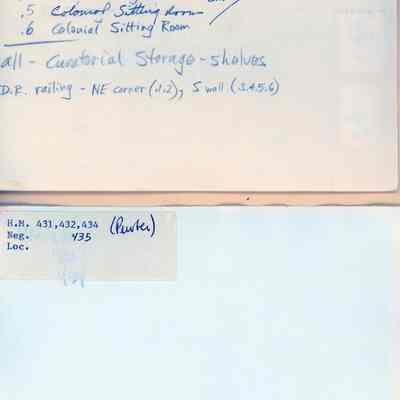 .5 Colonial Sitting Room
.6 Colonial Sitting Room
all - Curatorial Storage - shelves
D.R. railing - NE corner (.1.2), S wall (.3.4.5.6)
H.M. 431,432,434 (Pewter)
Neg. 435
Loc.